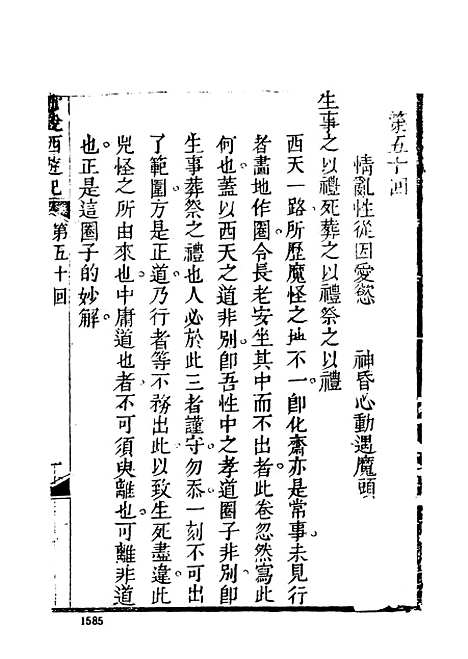 第五十回
情亂性從因愛慾　神昏心動遇魔頭
生事之以禮死葬之以禮祭之以禮
西天一路所歷魔怪之地不一卽化齋亦是常事未見行
者畫地作圈令長老安坐其中而不出者此卷忽然寫此
何也蓋以西天之道非別卽吾性中之孝道圈子非別卽
生事葬祭之禮也人必於此三者謹守勿忝一刻不可出
了範圍方是正道乃行者等不務出此以致生死盡違此
兕怪之所由來也中庸道也者不可須臾離也可離非道
也正是這圈子的妙解
說西遊記
第五十回
1585